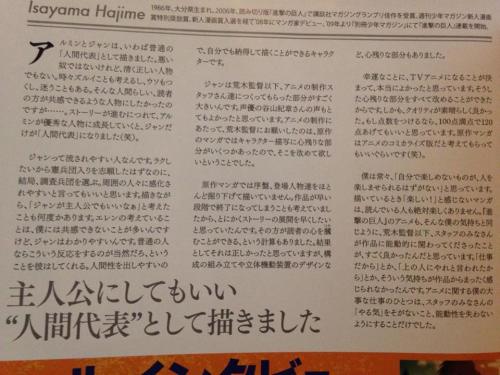 Isayama Hajime
1986年、大分県生まれ。2006年、読み切り版「進撃の巨人」で講談社マガジングランプリ佳作を受賞。週刊少年マガジン新人漫画賞特別奨励賞、新人漫画賞入選を経て'08年にマンガ家デビュー。'09年より『別冊少年マガジン』にて「進撃の巨人」連載を開始。
アルミンとジャンは、いわば普通の
「人間代表」として描きました。悪い
奴ではないけれど、清く正しい人物
でもない。時々ズルイことも考えるし、ウソもつ
くし、迷うこともある。そんな人間らしい、読者
の方が共感できるような人物にしたかったので
すが……。ストーリーが進むにつれて、アルミ
ンが優秀な人物に成長していくと、ジャンだけ
が「人間代表」になりました(笑)。
ジャンって流されやすい人なんです。ラクし
たいから憲兵団入りを志願したはずなのに、
結局、調査兵団を選ぶ。周囲の人々に感化さ
れやすいと言ってもいいと思います。描きなが
ら、「ジャンが主人公でもいいなぁ」と考えたこ
とも何度かあります。エレンの考えていること
は、僕には共感できないことが多いんですけ
ど、ジャンはわかりやすいんです。普通の人
ならこういう反応をするのが当然だろ、という
ことを彼はしてくれる。人間性を出しやすいの
で、自分でも納得して描くことができるキャラク
ターです。
ジャンは荒木監督以下、アニメの制作ス
タッフさん達につくってもらった部分がすごく
大きいんです。声優の谷山紀章さんの声もとて
もよかったと思っています。アニメの制作にあ
たって、荒木監督にお願いしたのは、原作の
マンガではキャラクター描写に心残りな部分
がいくつかあったので、そこを改めて欲しいと
いうことでした。
原作マンガでは序盤、登場人物達をほとん
ど掘り下げて描いていません。作品が早い段
階で終了になってしまうことも考えていました
から、とにかくストーリーの展開を早くしたい
と思っていたんです。その方が読者の心を掴
むことができる、という計算もありました。結果
としてそれは正しかったと思っていますが、構
成の組み立てや立体機動装置のデザインな
ど、心残りな部分もありました。
幸運なことに、TVアニメになることが決
まって、本当によかったと思っています。そうし
た心残りな部分をすべて改めることができた
からです。しかも、クオリティが素晴らしく良かっ
た。もし点数をつけるなら、100点満点で120
点あげてもいいと思います。原作のマンガは
アニメのコミカライズ版だと考えてもらっても
いいぐらいです(笑)。
僕は常々、「自分で楽しめないものが、人を
楽しませられるはずがない」と思っています。
描いているとき「楽しい！」と感じないマンガ
は、読んでいる人も絶対楽しくありません。『進
撃の巨人』のアニメも、そんな僕の気持ちと同
じように、荒木監督以下、スタッフのみなさん
が作品に能動的に関わってくださったことが、
すごく良かったんだと思います。「仕事だから」
とか、「上の人にやれと言われたから」とか、そ
ういう気持ちが作品からまったく感じられな
かったんです。アニメに関する僕の大事な仕事
のひとつは、スタッフのみなさんの「やる気」を
そがないこと、能動性を失わないようにするこ
とだけでした。
主人公にしてもいい
“人間代表”として描きました